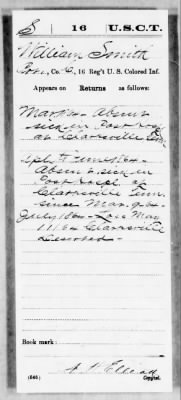 S 16 U.S.C.T.
William Smith
Pvt., Co. C, 16 Reg't U. S. Colored Inf.
Appears on
Returns as follows:
Mar/64 Absent
sick in Post Hosp
at Clarksville
Absent sick in
Post Hospl at
Clarksville Tenn.
since Mar. 9, 64
July/64
11/64 Clarksville
Deserted
Book mark:
(546)
Copyist.